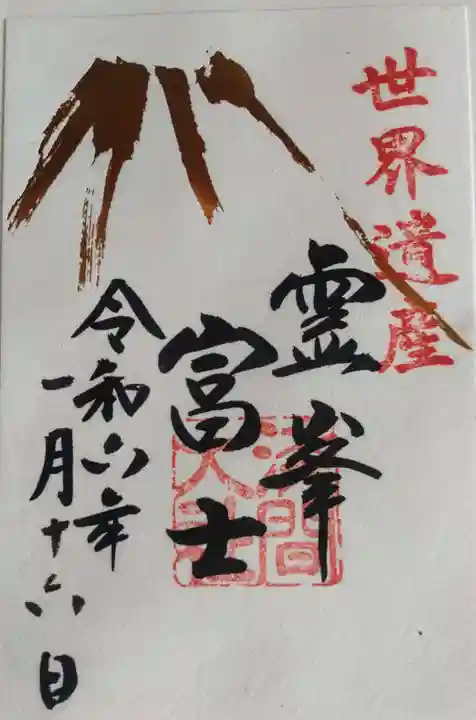 世界遺産
霊峯
富士
浅間
大社
令和六年
一月十六日